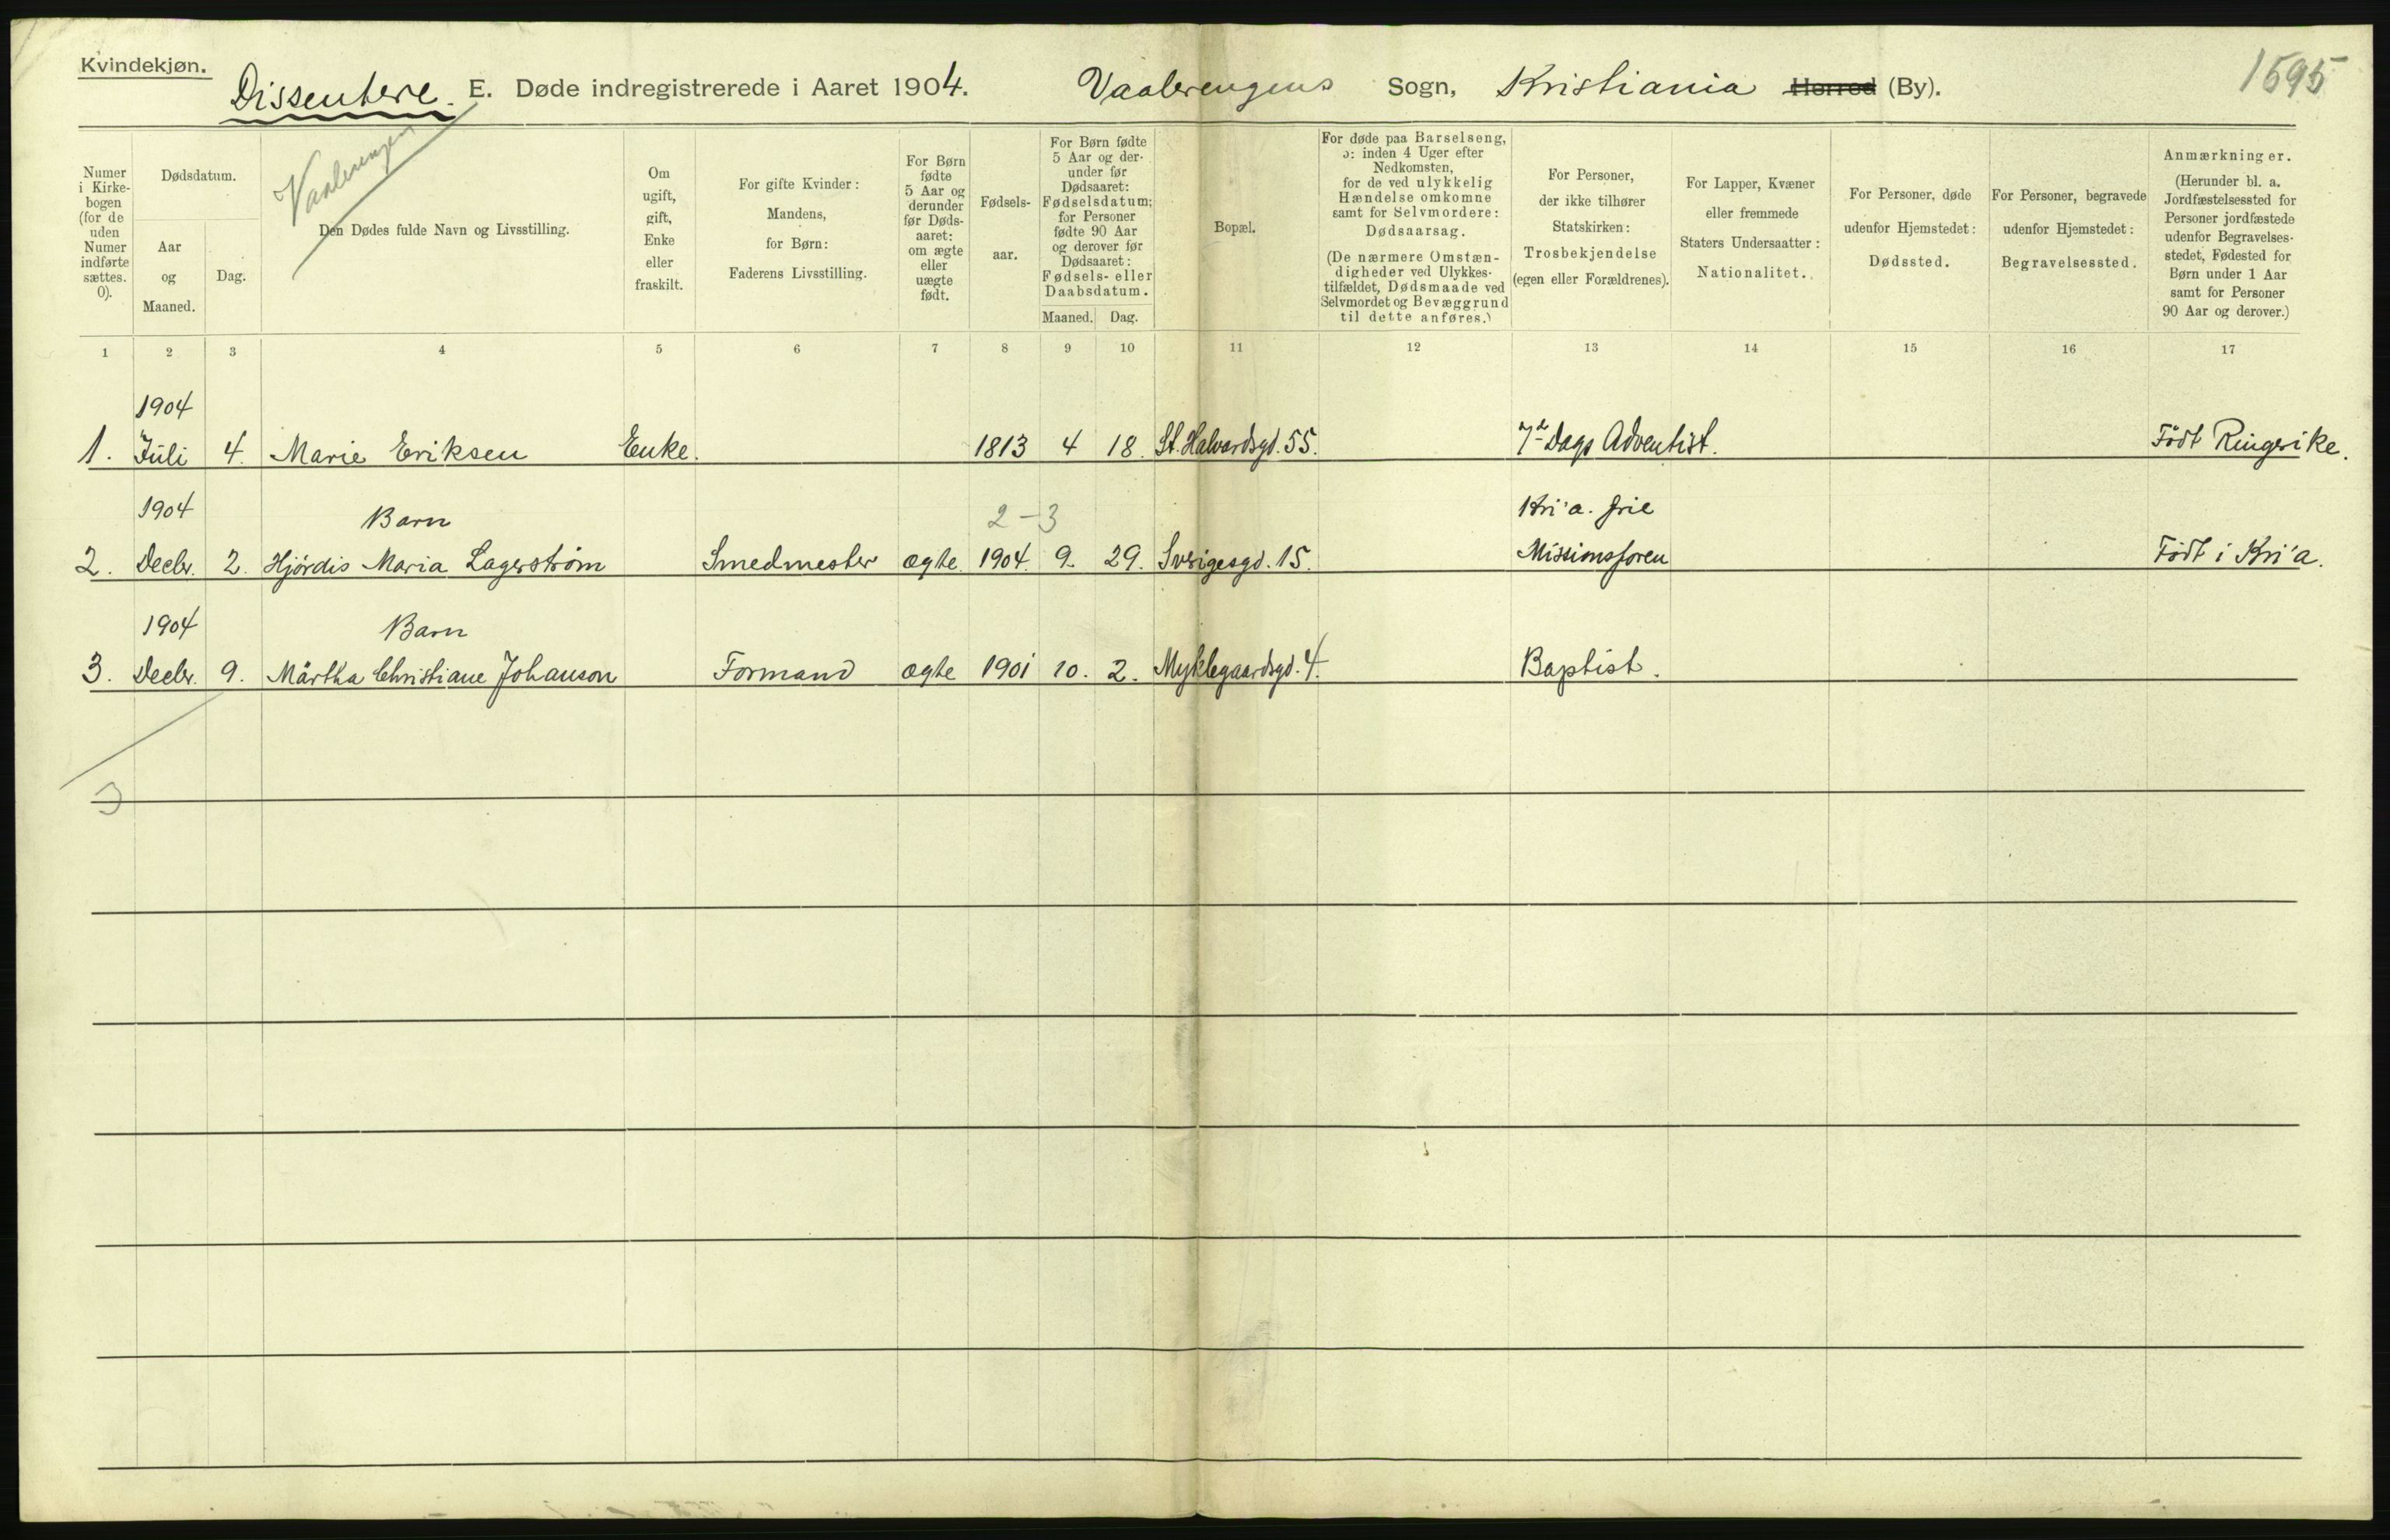 Kvindekjøn.
Dissentere. E. Døde indregistrerede i Aaret 1904. Vaalerengens Sogn, Kristiania Herred (By).
1595
Vaalerengen
Numer
i Kirke-
bogen
(for de
uden
Numer
indførte
sættes.
0).
Dødsdatum.
Aar
og
Maaned.
Dag.
Den Dødes fulde Navn og Livsstilling.
Om
ugift,
gift,
Enke
eller
fraskilt.
For gifte Kvinder:
Mandens,
for Børn:
Faderens Livsstilling.
For Børn
fødte
5 Aar og
derunder
før Døds-
aaret:
om ægte
eller
uægte
født.
Fødsels-
aar.
For Børn fødte
5 Aar og der-
under før
Dødsaaret:
Fødselsdatum;
for Personer
fødte 90 Aar
og derover før
Dødsaaret:
Fødsels- eller
Daabsdatum.
Maaned. Dag.
Bopæl.
For døde paa Barselseng,
ɔ: inden 4 Uger efter
Nedkomsten,
for de ved ulykkelig
Hændelse omkomne
samt for Selvmordere:
Dødsaarsag.
(De nærmere Omstæn-
digheder ved Ulykkes-
tilfældet, Dødsmaade ved
Selvmordet og Bevæggrund
til dette anføres.)
For Personer,
der ikke tilhører
Statskirken:
Trosbekjendelse
(egen eller Forældrenes).
For Lapper, Kvæner
eller fremmede
Staters Undersaatter:
Nationalitet.
For Personer, døde
udenfor Hjemstedet:
Dødssted.
For Personer, begravede
udenfor Hjemstedet:
Begravelsessted.
Anmærkninger.
(Herunder bl. a.
Jordfæstelsessted for
Personer jordfæstede
udenfor Begravelses-
stedet, Fødested for
Børn under 1 Aar
samt for Personer
90 Aar og derover.)
1 2 3 4 5 6 7 8 9 10 11 12 13 14 15 16 17
1904
1. Juli 4. Marie Eriksen Enke. 1813 4 18. St. Halvardsgd. 55. 7de Dags Adventist. Født Ringerike.
1904 Barn 2-3 Kri'a. frie
2. Decbr. 2. Hjørdis Maria Lagerstrøm Smedmester ægte. 1904. 9. 29. Sverigesgd. 15. Missionsforen Født i Kri'a.
1904 Barn
3. Decbr. 9. Märtha Christiane Johanson Formand ægte 1901 10. 2. Myklegaardsgd. 4. Baptist.
3